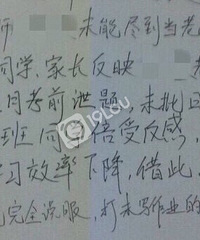 师 未能尽到当老
同学、家长反映
月考前泄题,未批
班 同 倍受反感,
习效率下降,借此
完全说服,打未写作业的
19楼